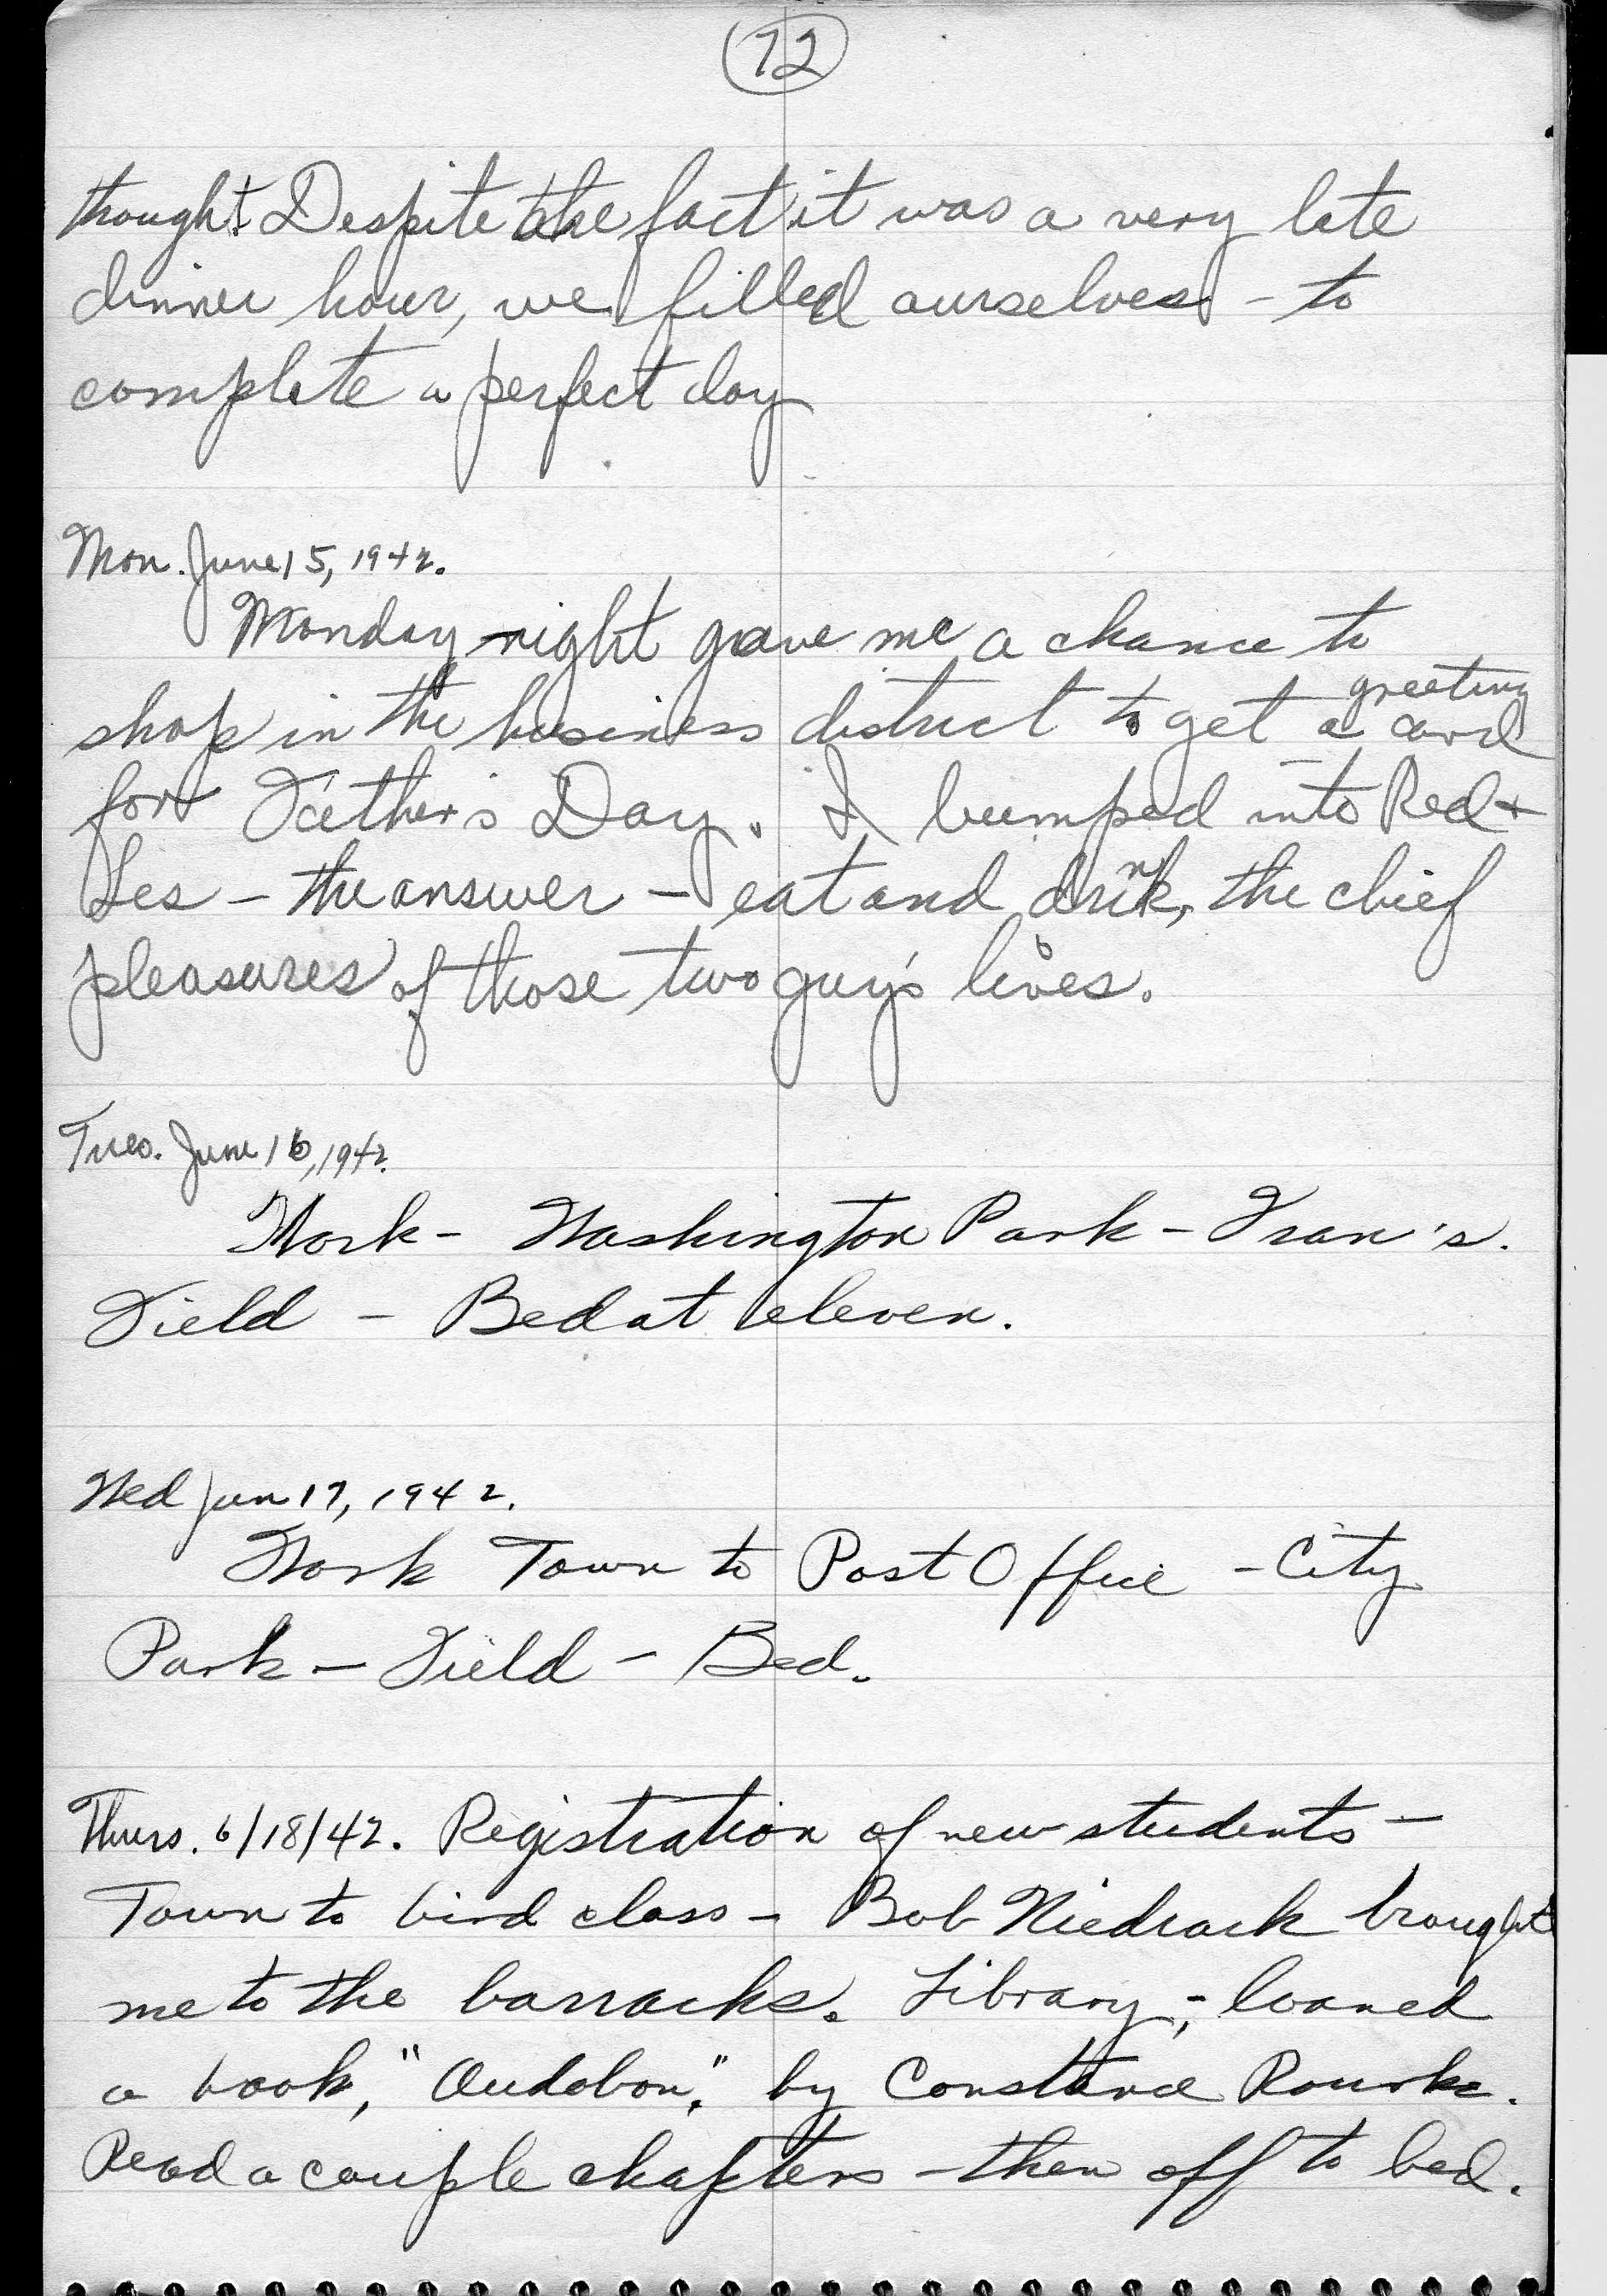 72
thought. Despite the fact it was a very late
dinner hour, we filled ourselves - to
complete a perfect day
Mon. June 15, 1942.
Monday night gave me a chance to
shop in the business district to get a greeting card
for Father's Day. I bumped into Red +
Les - the answer - "eat and drink, the chief
pleasures of those two guy's lives.
Tues. June 16, 1942.
Work - Washington Park - Fran's.
Field - Bed at eleven.
Wed Jun 17, 1942.
Work Town to Post Office - City
Park - Field - Bed.
Thurs. 6/18/42. Registration of new students -
Town to bird class - Bob Niedrack brought
me to the barracks. Library, - loaned
a book, "Audobon," by Constance Rourke.
Read a couple chapters - then off to bed.